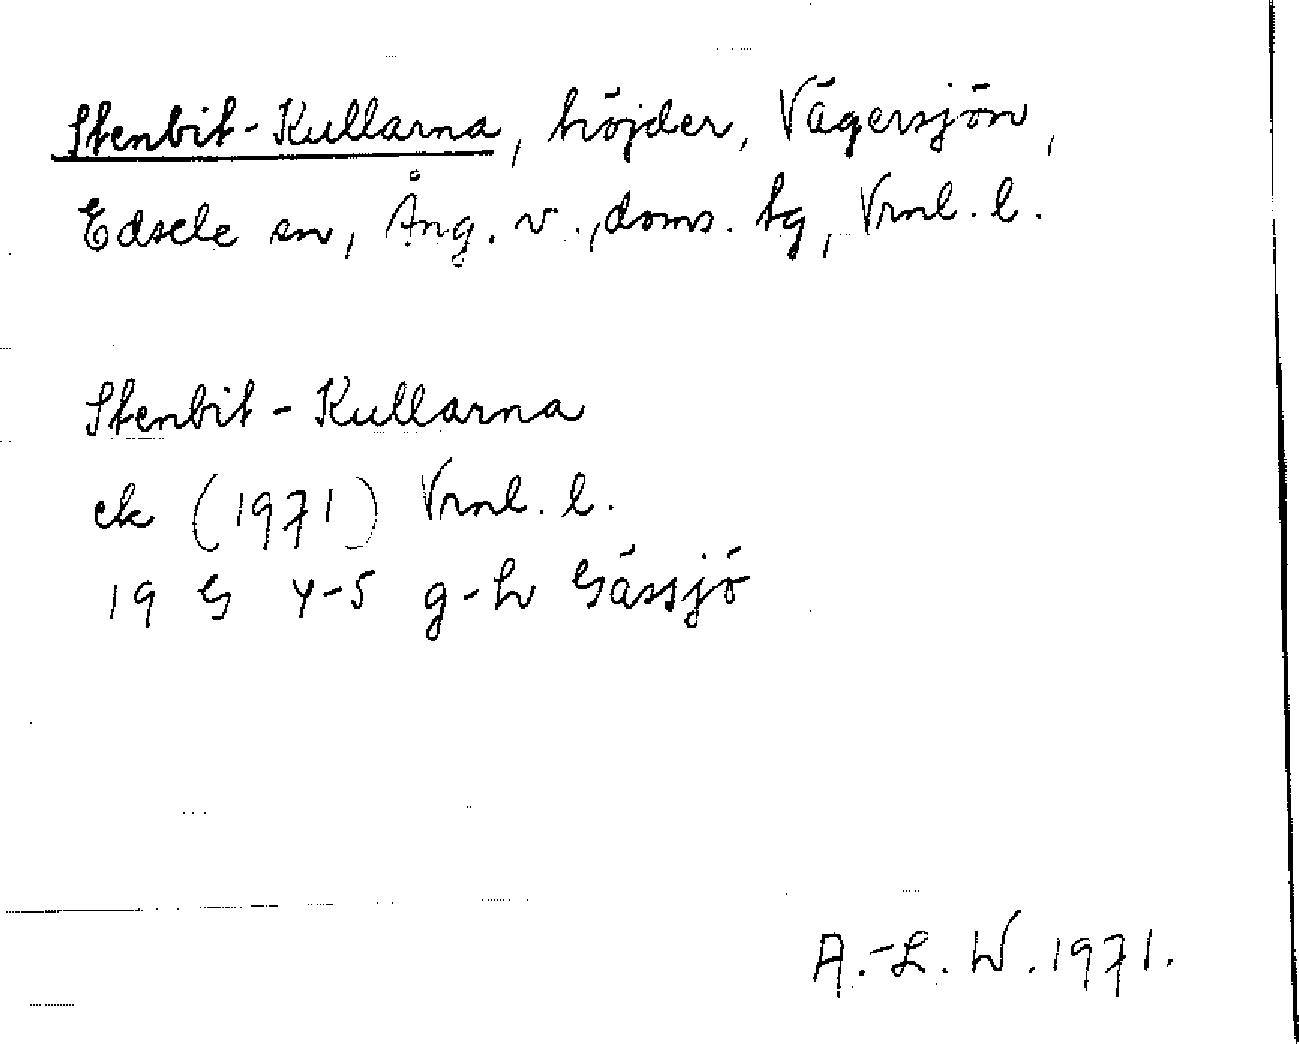 Stenbit-Kullarna, höjder, Vägersjön,
Edsele sn, Ång. v., doms. tg, Vrnl. l.
Stenbit-Kullarna
ek (1971) Vrnl. l.
19 G 4-5 g-h Gåssjö
A.-L. W. 1971.